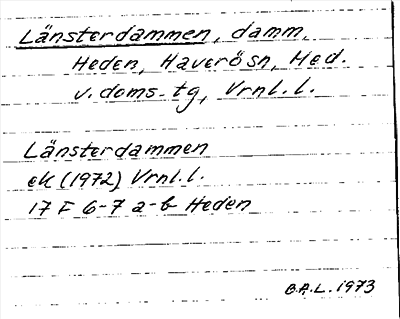 Länsterdammen, damm,
Heden, Haverösn, Hed.
v. doms. tg, Vrnl. l.
Länsterdammen
ek (1972) Vrnl. l.
17 F 6-7 a-b Heden
B.A.L. 1973